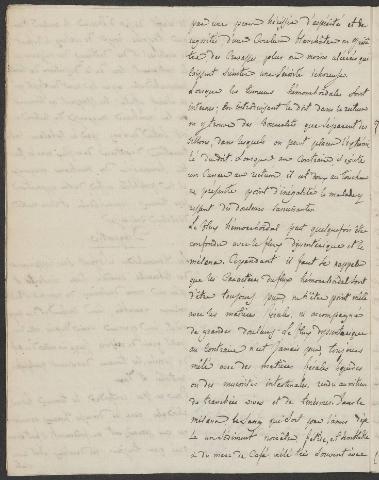 par une peau hérissée d'aspérités et de
rugosités d'une Couleur blanchâtre on y
des Crevasses plus ou moins ulcérées qui
laissent suinter une sérosité ichoreuse
Lorsque les tumeurs hémorrhoïdales sont
internes; En introduisant le doit dans le rectum
on y trouve des Bosselures que séparent des
Sillons, dans lesquels on peut placer l'extrémité
du doit. Lorsque au Contraire il existe
un Cancer au rectum, il est au toucher
ne présente point d'inégalités le malade y
ressent des douleurs lancinantes
Le flux hémorrhoidal peut quelquefois être
confondu avec le flux dysenterique et le
mélæna. Cependant il faut se rappeler
que les Caractères du flux hémorrhoidal sont
d'être toujours pur, n'être point mêlé
avec les matières fécales, ni accompagné
de grandes douleurs. Le flux dyssenterique
au Contraire n'est jamais pur, toujours
mêlé avec des matières fécales liquides
ou des mucosités intestinales, rendu au milieu
de tranchées vives et de tenesmes. Dans le
mélæna le Sang qui sort par l'anus
un Sédiment noirâtre, fétide, et semblable
à du marc de Café mêlé très souvent avec